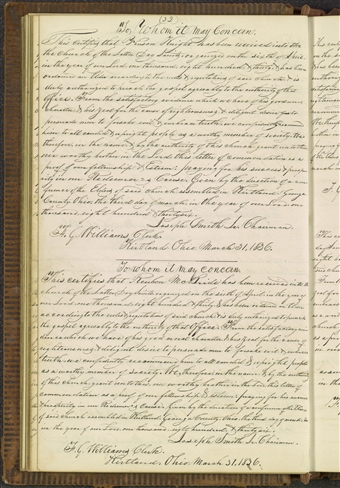 (32)
To Whom it May Concern.
This certifies that Vinson Knight has been received into
the Church of the Latter Day Saints, organized on the sixth of April
in the year of our Lord one thousand, eight hundred, & thirty, & has been
ordained an Elder according to the rules, & regulations of said church, & is
duly authorized to preach the gospel agreeably to the authority of that
office. From the satisfactory evidence which we have of his good moral
character, & his zeal for the cause of righteousness, & diligent desire to
persuade men to forsake evil & embrace truth, we confidently recommend
him to all candid & upright people as a worthy member of society. We
therefore, in the name, & by the authority of this church grant unto this
our worthy brother in the Lord this letter of commendation as a
proof of our fellowship & esteem: praying for his success & prosperity
in our Redeemer's Cause. Given by the direction of a con-
ference of the Elders of said church assembled in Kirtland Geauga
County Ohio the third day of march in the year of our Lord one
thousand, eight hundred, & thirty six.
Joseph Smith Jr. Chairman
F. G. Williams Clerk
Kirtland Ohio March 31, 1836.
To whom it may concern.
This certifies that
has been received into the
church of the Latter Day Saints, organized on the sixth of April, in the year of
our Lord one thousand, eight hundred, & thirty, & has been ordained an Elder
according to the rules, & regulations of said church, & is duly authorized to preach
the gospel agreeably to the authority of that office. From the satisfactory evi-
dence which we have of his good moral character, & his zeal for the cause of
righteousness, & diligent desire to persuade men to forsake evil & embrace
truth, we confidently recommend him to all candid & upright people
as a worthy member of society. We, therefore, in the name, & by the authority
of this church grant unto this our worthy brother in the Lord this letter of
commendation as a proof of our fellowship & esteem: praying for his success
& prosperity in our Redeemer's Cause. Given by the direction of a conference of the Elders
of said church assembled in Kirtland Geauga County Ohio the third day of march
in the year of our Lord one thousand, eight hundred, & thirty six.
Joseph Smith Jr. Chairman.
F. G. Williams Clerk.
Kirtland, Ohio March 31, 1836.